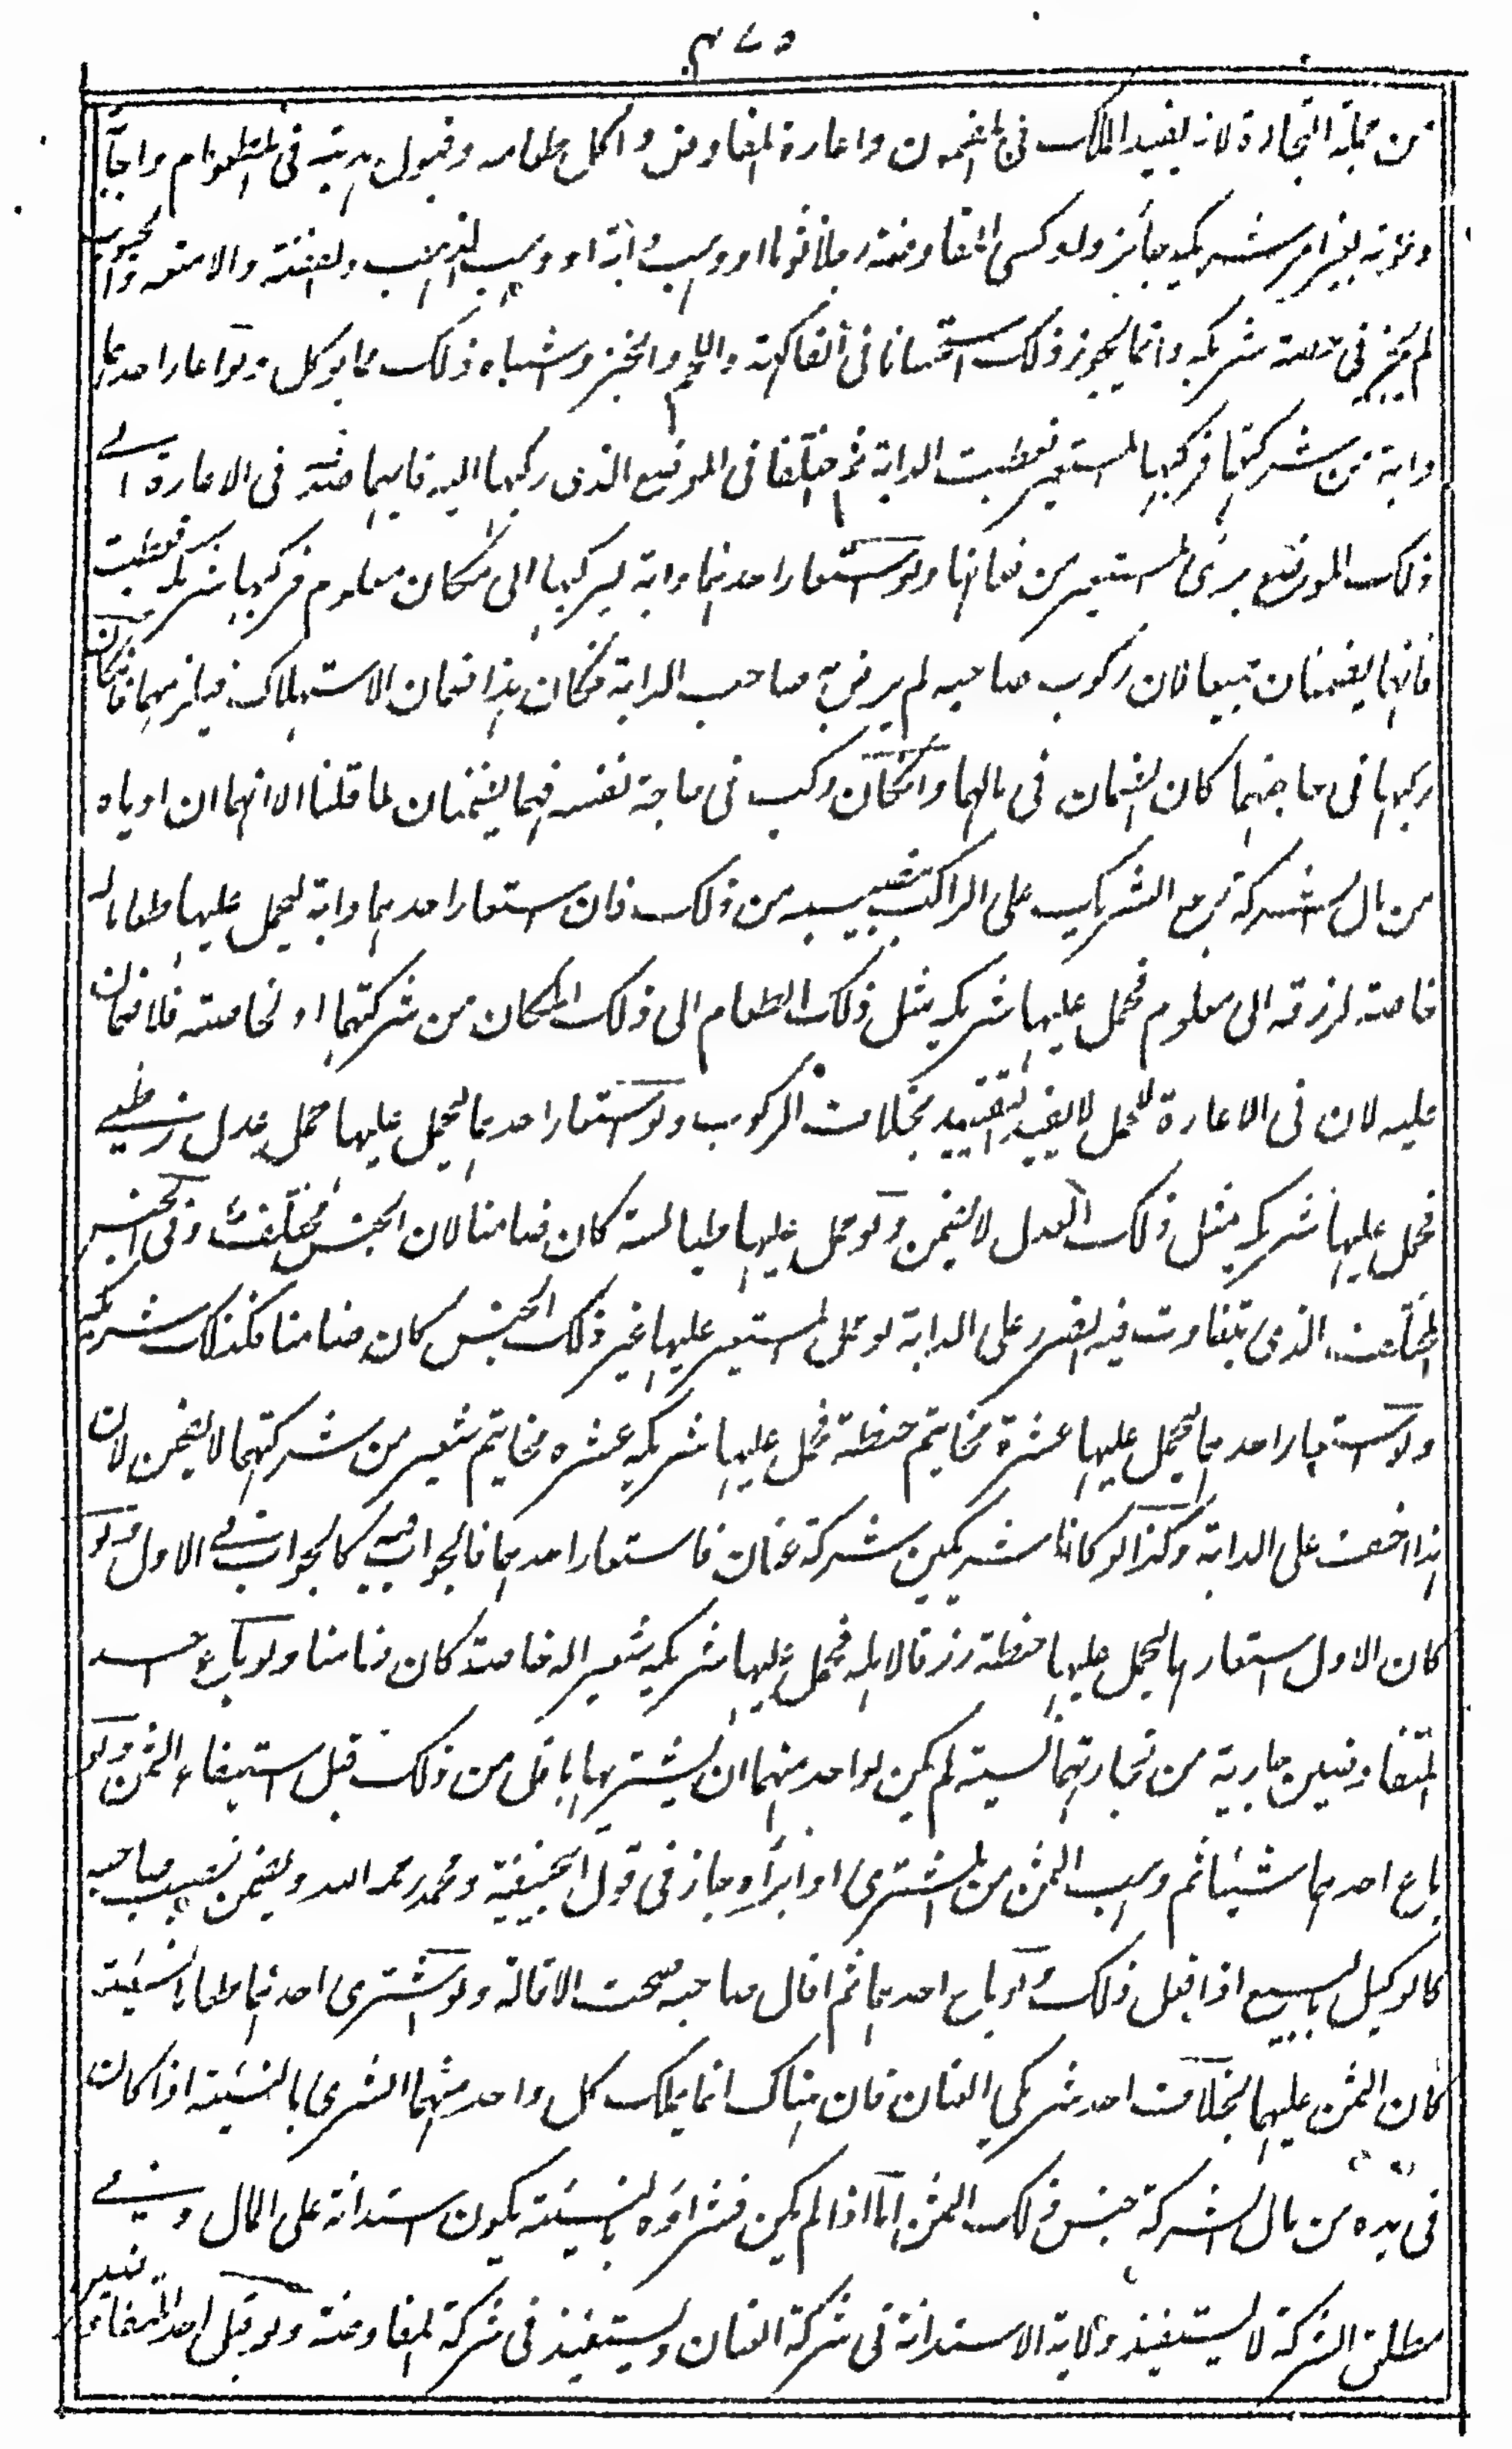 ٤٧٥
من جملة التجارة لانه يفيد الملك فى المضمون واعارة المفاوض واكل طعامه وقبول هديته فى المطعوم واجابة
دعوته بغير امر شريكه جائز ولو كسى المفاوضة رجلا ثوبا او وهب دابة او وهب الذهب والفضة والامتعة والحبوب
لم يجز فى حصة شريكه وانما يجوز ذلك استحسانا فى الفاكهة واللحم والخبز واشباه ذلك مما يوكل ولو اعار احدهما
دابة من شركتهما فركبها المستعير فعطبت الدابة ثم اختلفا فى الموضع الذى ركبها اليه فايهما صدقه فى الاعارة الى
ذلك الموضع برئ المستعير من ضمانها ولو استعار احدهما دابة ليركبها الى مكان معلوم فركبها شريكه فعطبت
فانهما يضمنان جميعا لان ركوب صاحبه لم يرض به صاحب الدابة فكان هذا ضمان الاستهلاك فيلزمهما فان كان
ركبها فى حاجتهما كان الضمان فى مالهما وان كان ركب فى حاجة نفسه فهما يضمنان لما قلنا الا انهما ان ادياه
من مال الشركة يرجع الشريك على الراكب بنصيبه من ذلك فان استعار احدهما دابة ليحمل عليها طعاما له
خاصة لرزقه الى معلوم فحمل عليها شريكه مثل ذلك الطعام الى ذلك المكان من شركتهما او لخاصته فلا ضمان
عليه لان فى الاعارة للحمل لا يفيد التقييد بخلاف الركوب ولو استعار احدهما ليحمل عليها حمل عدل زطى
فحمل عليها شريكه مثل ذلك العدل لا يضمن ولو حمل عليها طيالسة كان ضامنا لان الجنس مختلف وفى الجنس
المختلف الذى يتفاوت فيه الضرر على الدابة لو حمل المستعير عليها غير ذلك الجنس كان ضامنا فكذلك شريكه
ولو استعار احدهما ليحمل عليها عشرة مخاتيم حنطة فحمل عليها شريكه عشرة مخاتيم شعير من شركتهما لا يضمن لان
هذا اخف على الدابة وكذا لو كانا شريكين شركة عنان فاستعار احدهما فالجواب فيه كالجواب فى الاول ولو
كان الاول استعارها ليحمل عليها حنطة رزقا لاهله فحمل عليها شريكه شعيرا له خاصة كان ضامنا ولو باع احد
المتفاوضين جارية من تجارتهما نسيئة لم يكن لواحد منهما ان يشتريها باقل من ذلك قبل استيفاء الثمن ولو
باع احدهما شيئا ثم وهب الثمن من المشترى او ابرأه جاز فى قول ابيحنيفة ومحمد رحمه الله ويضمن نصيب صاحبه
كالوكيل بالبيع اذا فعل ذلك ولو باع احدهما ثم اقال صاحبه صحت الاقالة ولو اشترى احدهما طعاما بالنسيئة
كان الثمن عليهما بخلاف احد شريكى العنان فان هناك انما يملك كل واحد منهما الشرى بالنسيئة اذا كان
فى يده من مال الشركة جنس ذلك الثمن اما اذا لم يكن فشراؤه بالنسيئة يكون استدانة على المال وفى
مطلق الشركة لا يستفيذ ولاية الاستدانة فى شركة العنان ويستفيذ فى شركة المفاوضة ولو قبل احد المتفاوضين